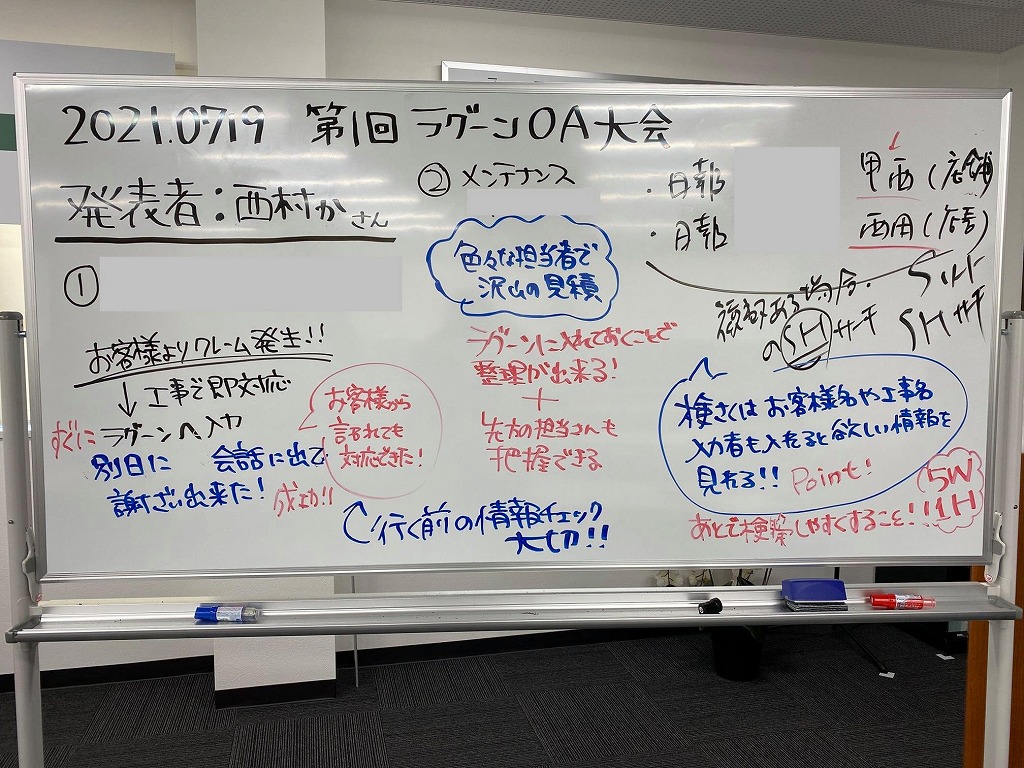 2021.0719 第1回 ラグーンOA大会
発表者:西村か さん
①
お客様よりクレーム発生!!
↓工事で即対応
すぐに ラグーンへ入力
別日に 会話に出て
謝ざい出来た! 成功!!
お客様から
言われても
対応できた!
② メンテナンス
色々な担当者で
沢山の見積
ラグーンに入れておくことで
整理が出来る!
+
先方の担当さんも
把握できる
行く前の情報チェック
大切!!
・日報
・日報
甲西(店舗
西田(店舗)
複数ある場合.
のSHサーチ
検さくはお客様名や工事名
入力者も入れると欲しい情報を
見れる!! Point!
5W
1H
あとで検索しやすくすること!!